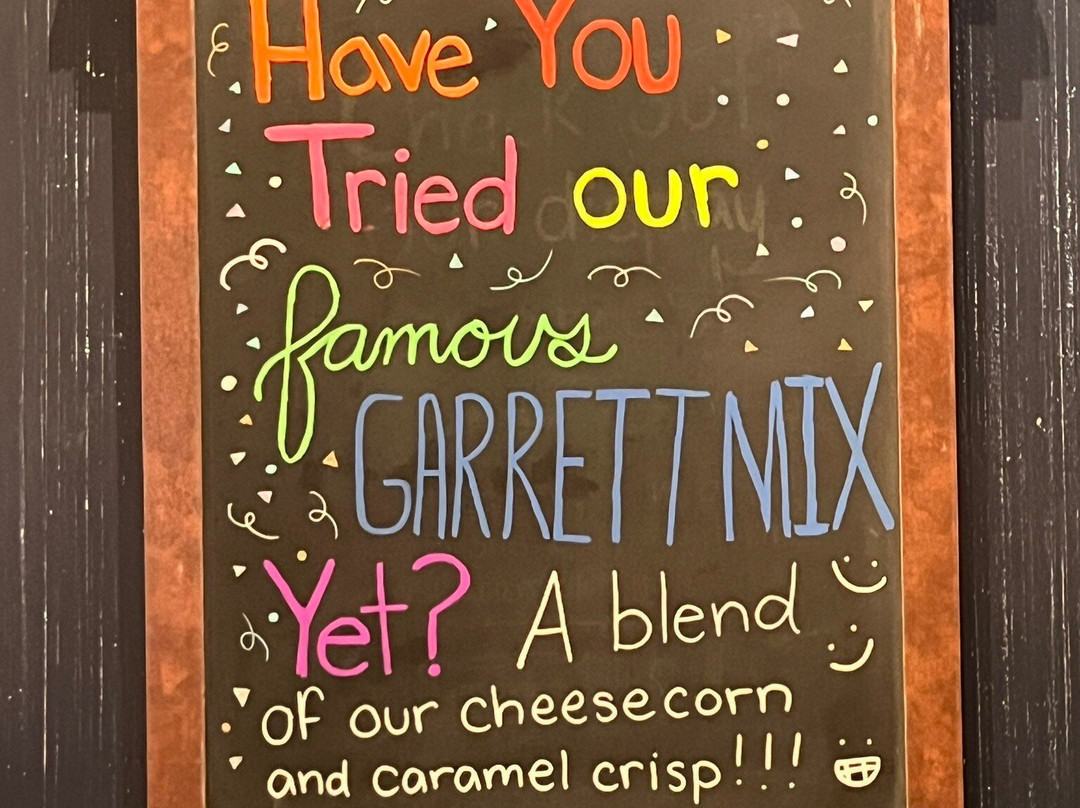 Have You
Tried our
famous
GARRETT MIX
Yet? A blend
of our cheesecorn
and caramel crisp!!!